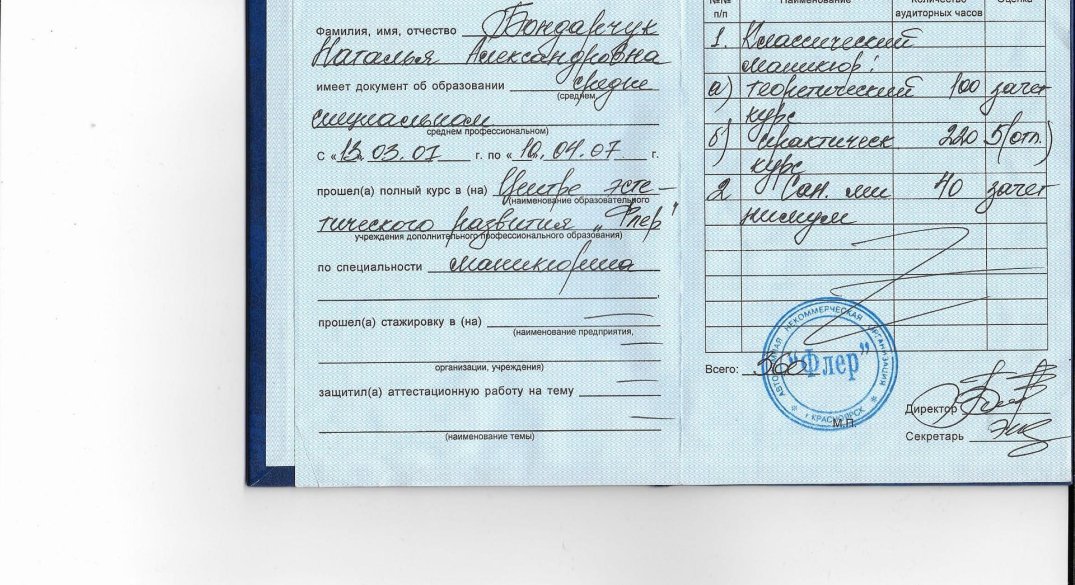 Фамилия, имя, отчество Бондарчук
Наталья Александровна
имеет документ об образовании средне
(среднем,
специальном
среднем профессиональном)
С «13» 03.07 г. по «10» 04.07 г.
прошел(а) полный курс в (на) Центре эсте-
(наименование образовательного
тического развития „Флер"
учреждения дополнительного профессионального образования)
по специальности маникюрша
прошел(а) стажировку в (на)
(наименование предприятия,
организации, учреждения)
защитил(а) аттестационную работу на тему
(наименование темы)
№№ п/п Наименование Количество аудиторных часов Оценка
1. Классический
маникюр:
а) теоретический 100 зачет
курс
б) практическ 220 5(отл.)
курс
2 Сан. ми 40 зачет
нимум
Всего: 360
АВТОНОМНАЯ НЕКОММЕРЧЕСКАЯ ОРГАНИЗАЦИЯ
"Флер"
г КРАСНОЯРСК
М.П.
Директор
Секретарь